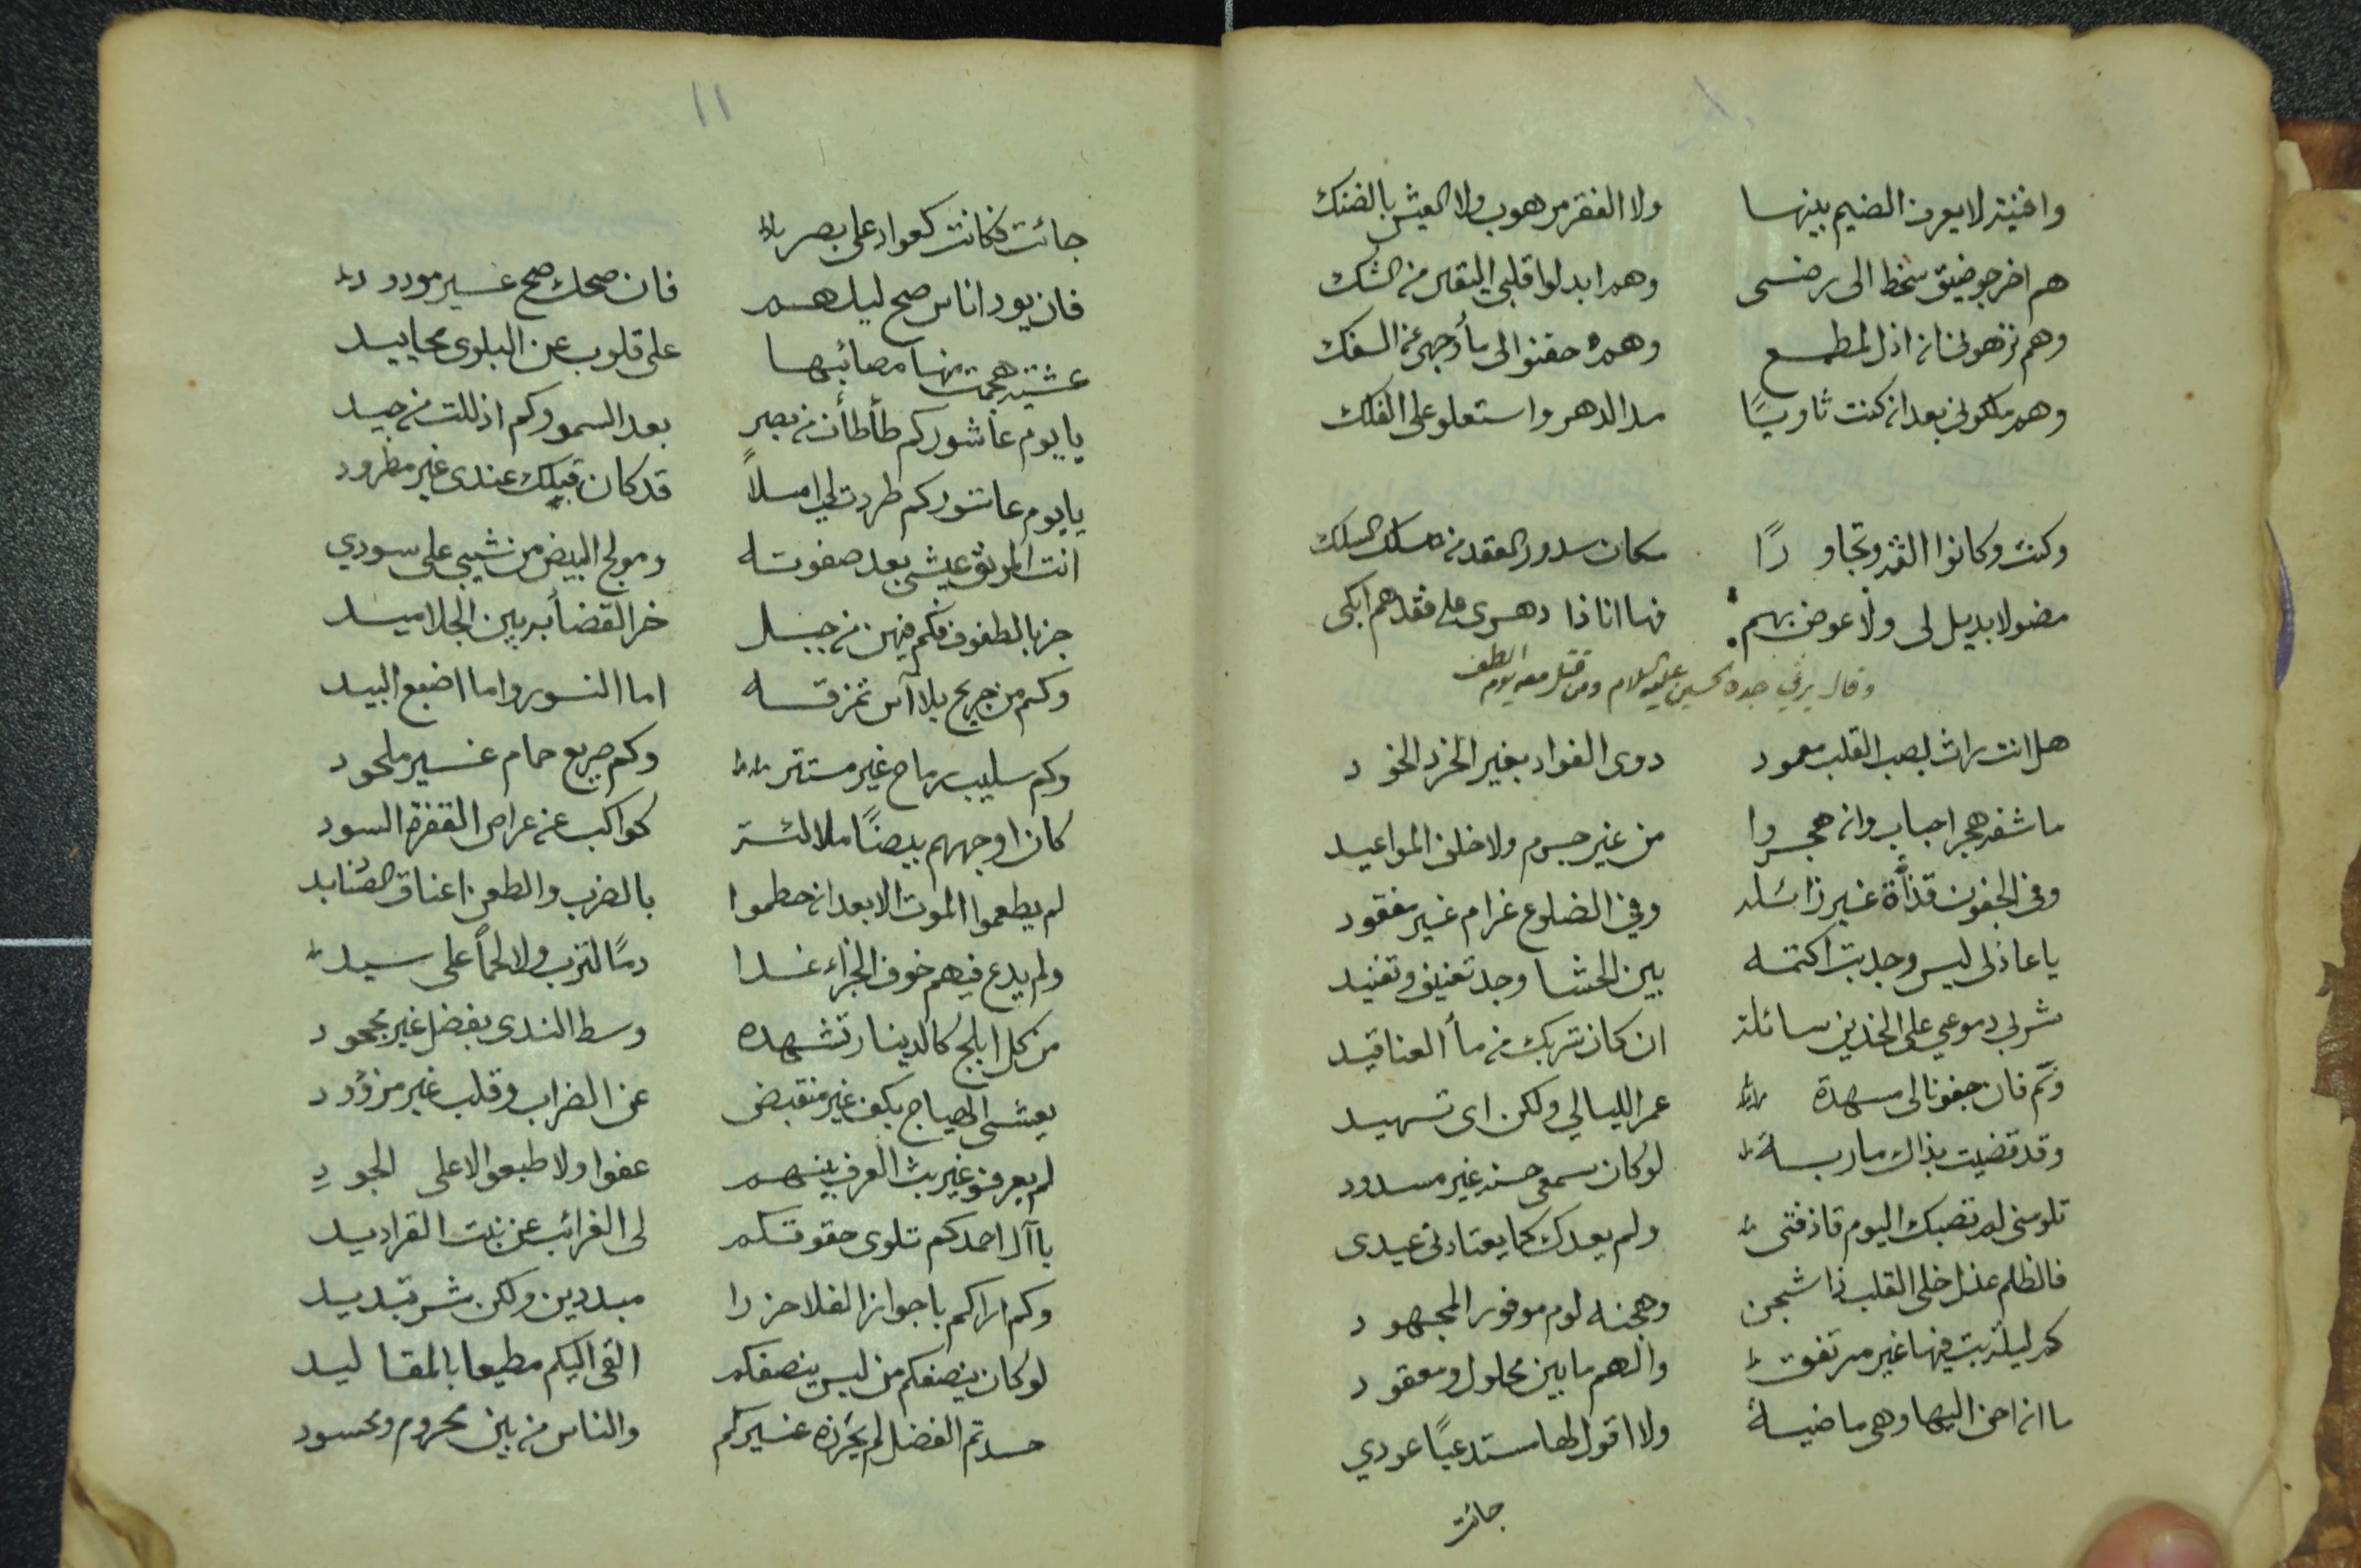 وافنية لا يعرف الضيم بينها ولا الفقر مرهوب ولا العيش بالضنك
هم اخرجو ضيق سخط الى رضى وهم ابدلوا قلبى اليقين من الشك
وهم نزهونى ان اذل لمطمع وهم حقنوا لى مأ وجهى عن السفك
وهم ملكونى بعد ان كنت ثاويًا مدا الدهر واستعلو على الفلك
وكنت وكانوا الفة وتجاورًا مكان سدور العقد من السلك
مضو لا بديل لى ولا عوض بهم فها انا ذا دهرى على فقدهم ابكى
وقال يرثي جده الحسين عليه السلام ومن قتل معه يوم الطف
هل انت راث لصب القلب معمود دوى الفواد بغير الخرد الخود
ما شفه هجر احباب وان هجروا من غير جرم ولا خلف المواعيد
وفى الجفون قذأة غير زائله وفي الضلوع غرام غير مفقود
يا عاذلى ليس وجد بت اكتمه بين الحشا وجد تعنيف وتفنيد
شربى دموعي على الخدين سائلة ان كان شربك من مأ العناقيد
ونم فان جفونا لى مسهدة عمر الليالي ولكن اى تسهيد
وقد قضيت بذاك ماربة لو كان سمعى عنه غير مسدود
تلومنى لم تصبك اليوم قاذفتى ولم يعدك كما يعتادنى عيدى
فالظلم عذل خلى القلب ذا شجن وهجنه لوم موفور المجهود
كم ليلة بت فيها غير مرتفق والهم ما بين محلول ومعقود
ما ان احن اليها وهى ماضية ولا اقول لها مستدعيًا عودي
جائت
١١
جائت فكانت كعوار على بصر
فان يود اناس صبح ليلهم فان صبحك صبح غير مودود
عشية هجمت منها مصائبها على قلوب عن البلوى محاييد
يا يوم عاشور كم طأطأت من بصرٍ بعد السمو وكم اذللت من جيد
يا يوم عاشور كم طردت لي املاً قد كان قبلك عندى غير مطرود
انت المرنق عيشى بعد صفوته ومولج البيض من شيبي على سودي
جز بالطفوف فكم فيهن من جبل خر القضأ به بين الجلاميد
وكم من جريح بلا آس تمزقه اما النسور واما اضبع البيد
وكم سليب رماح غير مستتر وكم صريع حمام غير ملحود
كان اوجههم بيضًا ملالئة كواكب عن عراص القفرة السود
لم يطعموا الموت الا بعد ان حطموا بالضرب والطعن اعناق الصنايد
ولم يدع فيهم خوف الجزاء غدا دمًا لترب ولا لحمًا على سيد
من كل ابلج كالدينار تشهده وسط الندى بفضل غير مجحود
يعشى الهياج بكف غير منقبض عن الضراب وقلب غير مزؤود
لم يعرفو غير بث العرف بينهم عفوا ولا طبعوا الا على الجودِ
يا آل احمد كم تلوى حقوقكم لى الغرائب عن نبت القراديد
وكم اراكم باجواز الفلا جزرا مبددين ولكن شر تبديد
لو كان ينصفكم من ليس ينصفكم القى اليكم مطيعا بالمقاليد
حسدتم الفضل لم يحرزه غيركم والناس من بين محروم ومحسود